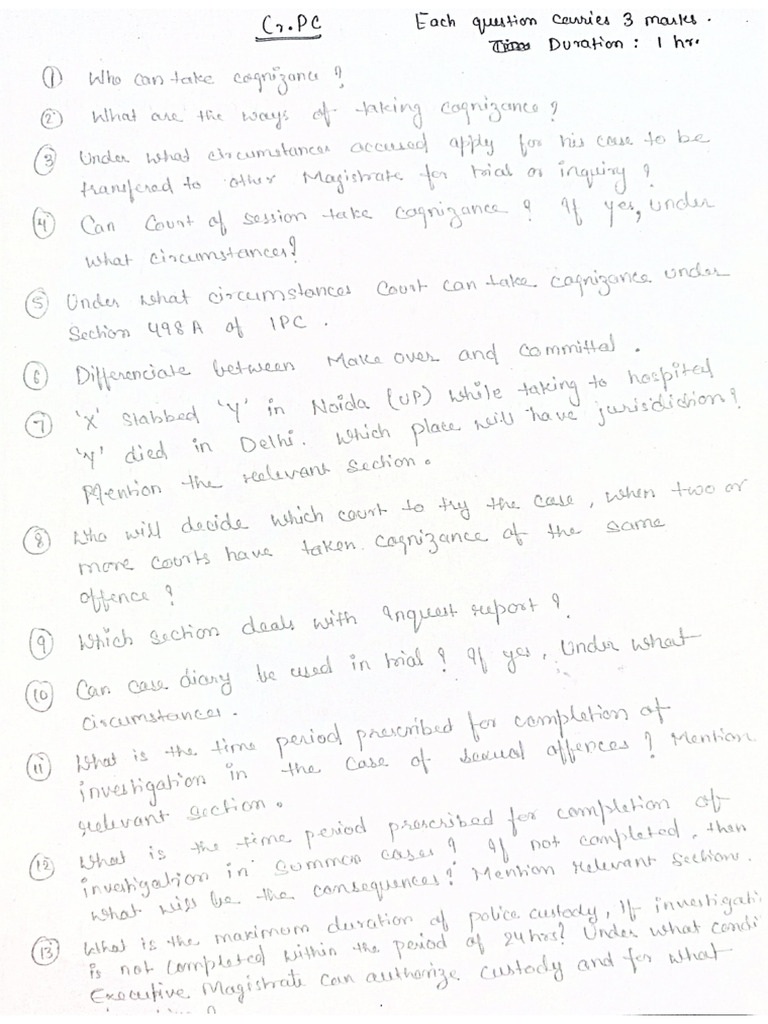 Cr.PC
Each question carries 3 marks.
Duration : 1 hr.
① Who can take cognizance ?
② What are the ways of taking cognizance ?
③ Under what circumstances accused apply for his case to be
transfered to other Magistrate for trial or inquiry ?
④ Can Court of session take cognizance ? If yes, under
what circumstances?
⑤ Under what circumstances Court can take cognizance under
Section 498A of IPC .
⑥ Differenciate between Make over and committal .
⑦ 'X' stabbed 'Y' in Noida (UP) while taking to hospital
'Y' died in Delhi. Which place will have jurisdiction?
Mention the relevant section.
⑧ Who will decide which court to try the case, when two or
more courts have taken cognizance of the same
offence ?
⑨ Which section deals with Inquest report ?
⑩ Can case diary be used in trial ? If yes, Under what
circumstances.
⑪ What is the time period prescribed for completion of
investigation in the case of sexual offences ? Mention
relevant section.
⑫ What is the time period prescribed for completion of
investigation in summon cases ? If not completed, then
what will be the consequences? Mention relevant section.
⑬ What is the maximum duration of police custody, If investigati
is not completed within the period of 24 hrs? Under what condi
Executive Magistrate can authorize custody and for what